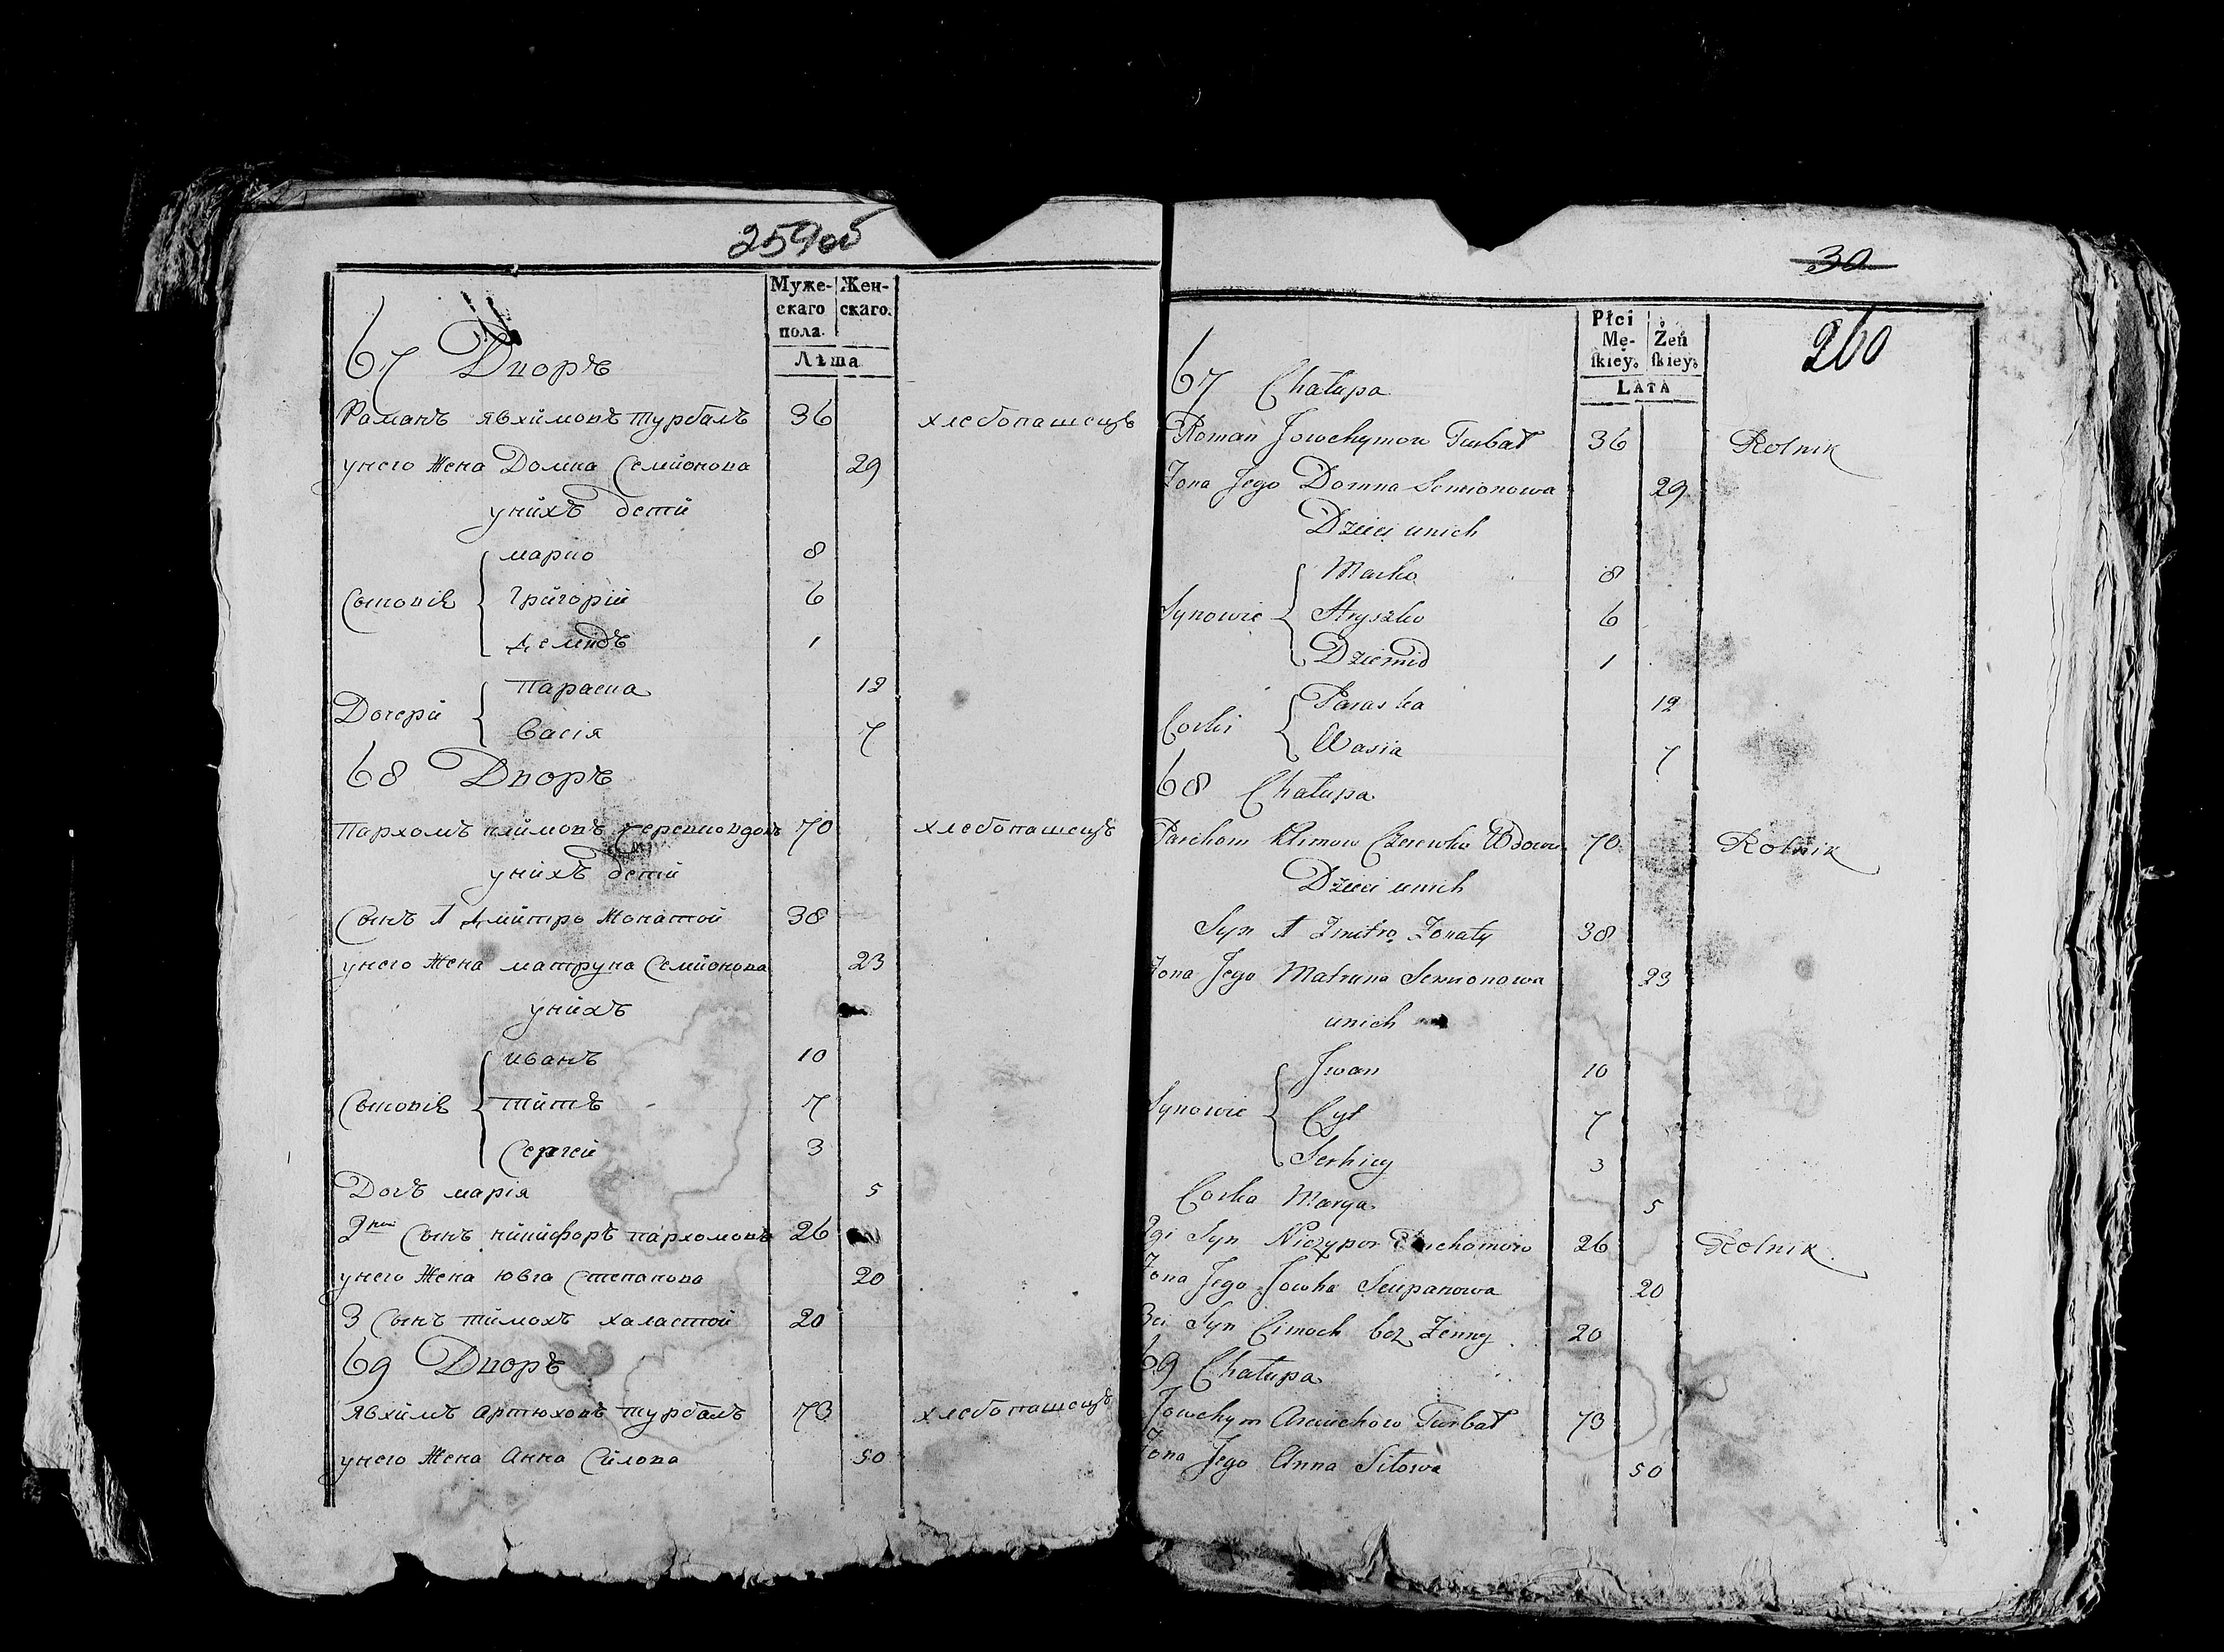 259об
Муже- Жен-
скаго скаго.
пола.
Лѣта
67 Дворъ
Романъ Явхимовъ Турбалъ 36 хлебопашецъ
унего Жена Домна Семионова 29
унихъ дети
марко 8
Сыновiе Григорiй 6
Демидъ 1
Параска 12
Дочери
Васiя 7
68 Дворъ
Пархомъ климовъ Черевко вдовъ 70 хлебопашецъ
унихъ дети
Сынъ 1 Дмитро Жонатой 38
унего Жена матруна Семионова 23
унихъ
иванъ 10
Сыновiе титъ 7
Сергей 3
Дочъ марiя 5
2ной Сынъ никифоръ пархомовъ 26
унего Жена ювга Степанова 20
3 Сынъ тимохъ халастой 20
69 Дворъ
Явхимъ Артюховъ Турбалъ 73 хлебопашецъ
унего Жена Анна Силова 50
30
260
Płci
Mę- Żeń
skiey. skiey.
LATA
67 Chałupa
Roman Jowchymow Turbał 36 Rolnik
Żona Jego Domna Semionowa 29
Dzieci unich
Marko 8
Synowie Hryszko 6
Dziemid 1
Paraska 12
Corki
Wasia 7
68 Chałupa
Parchom Klimow Czerewko Wdowiec 70 Rolnik
Dzieci unich
Syn 1 Zmitro Żonaty 38
Żona Jego Matruna Semionowa 23
unich
Jwan 10
Synowie Cyt 7
Serhiey 3
Corka Marya 5
2gi Syn Niczypor Parchomow 26 Rolnik
Żona Jego Jowha Sciepanowa 20
3ci Syn Cimoch bez Żenny 20
69 Chałupa
Jowchym Arciuchow Turbał 73
Żona Jego Anna Siłowa 50